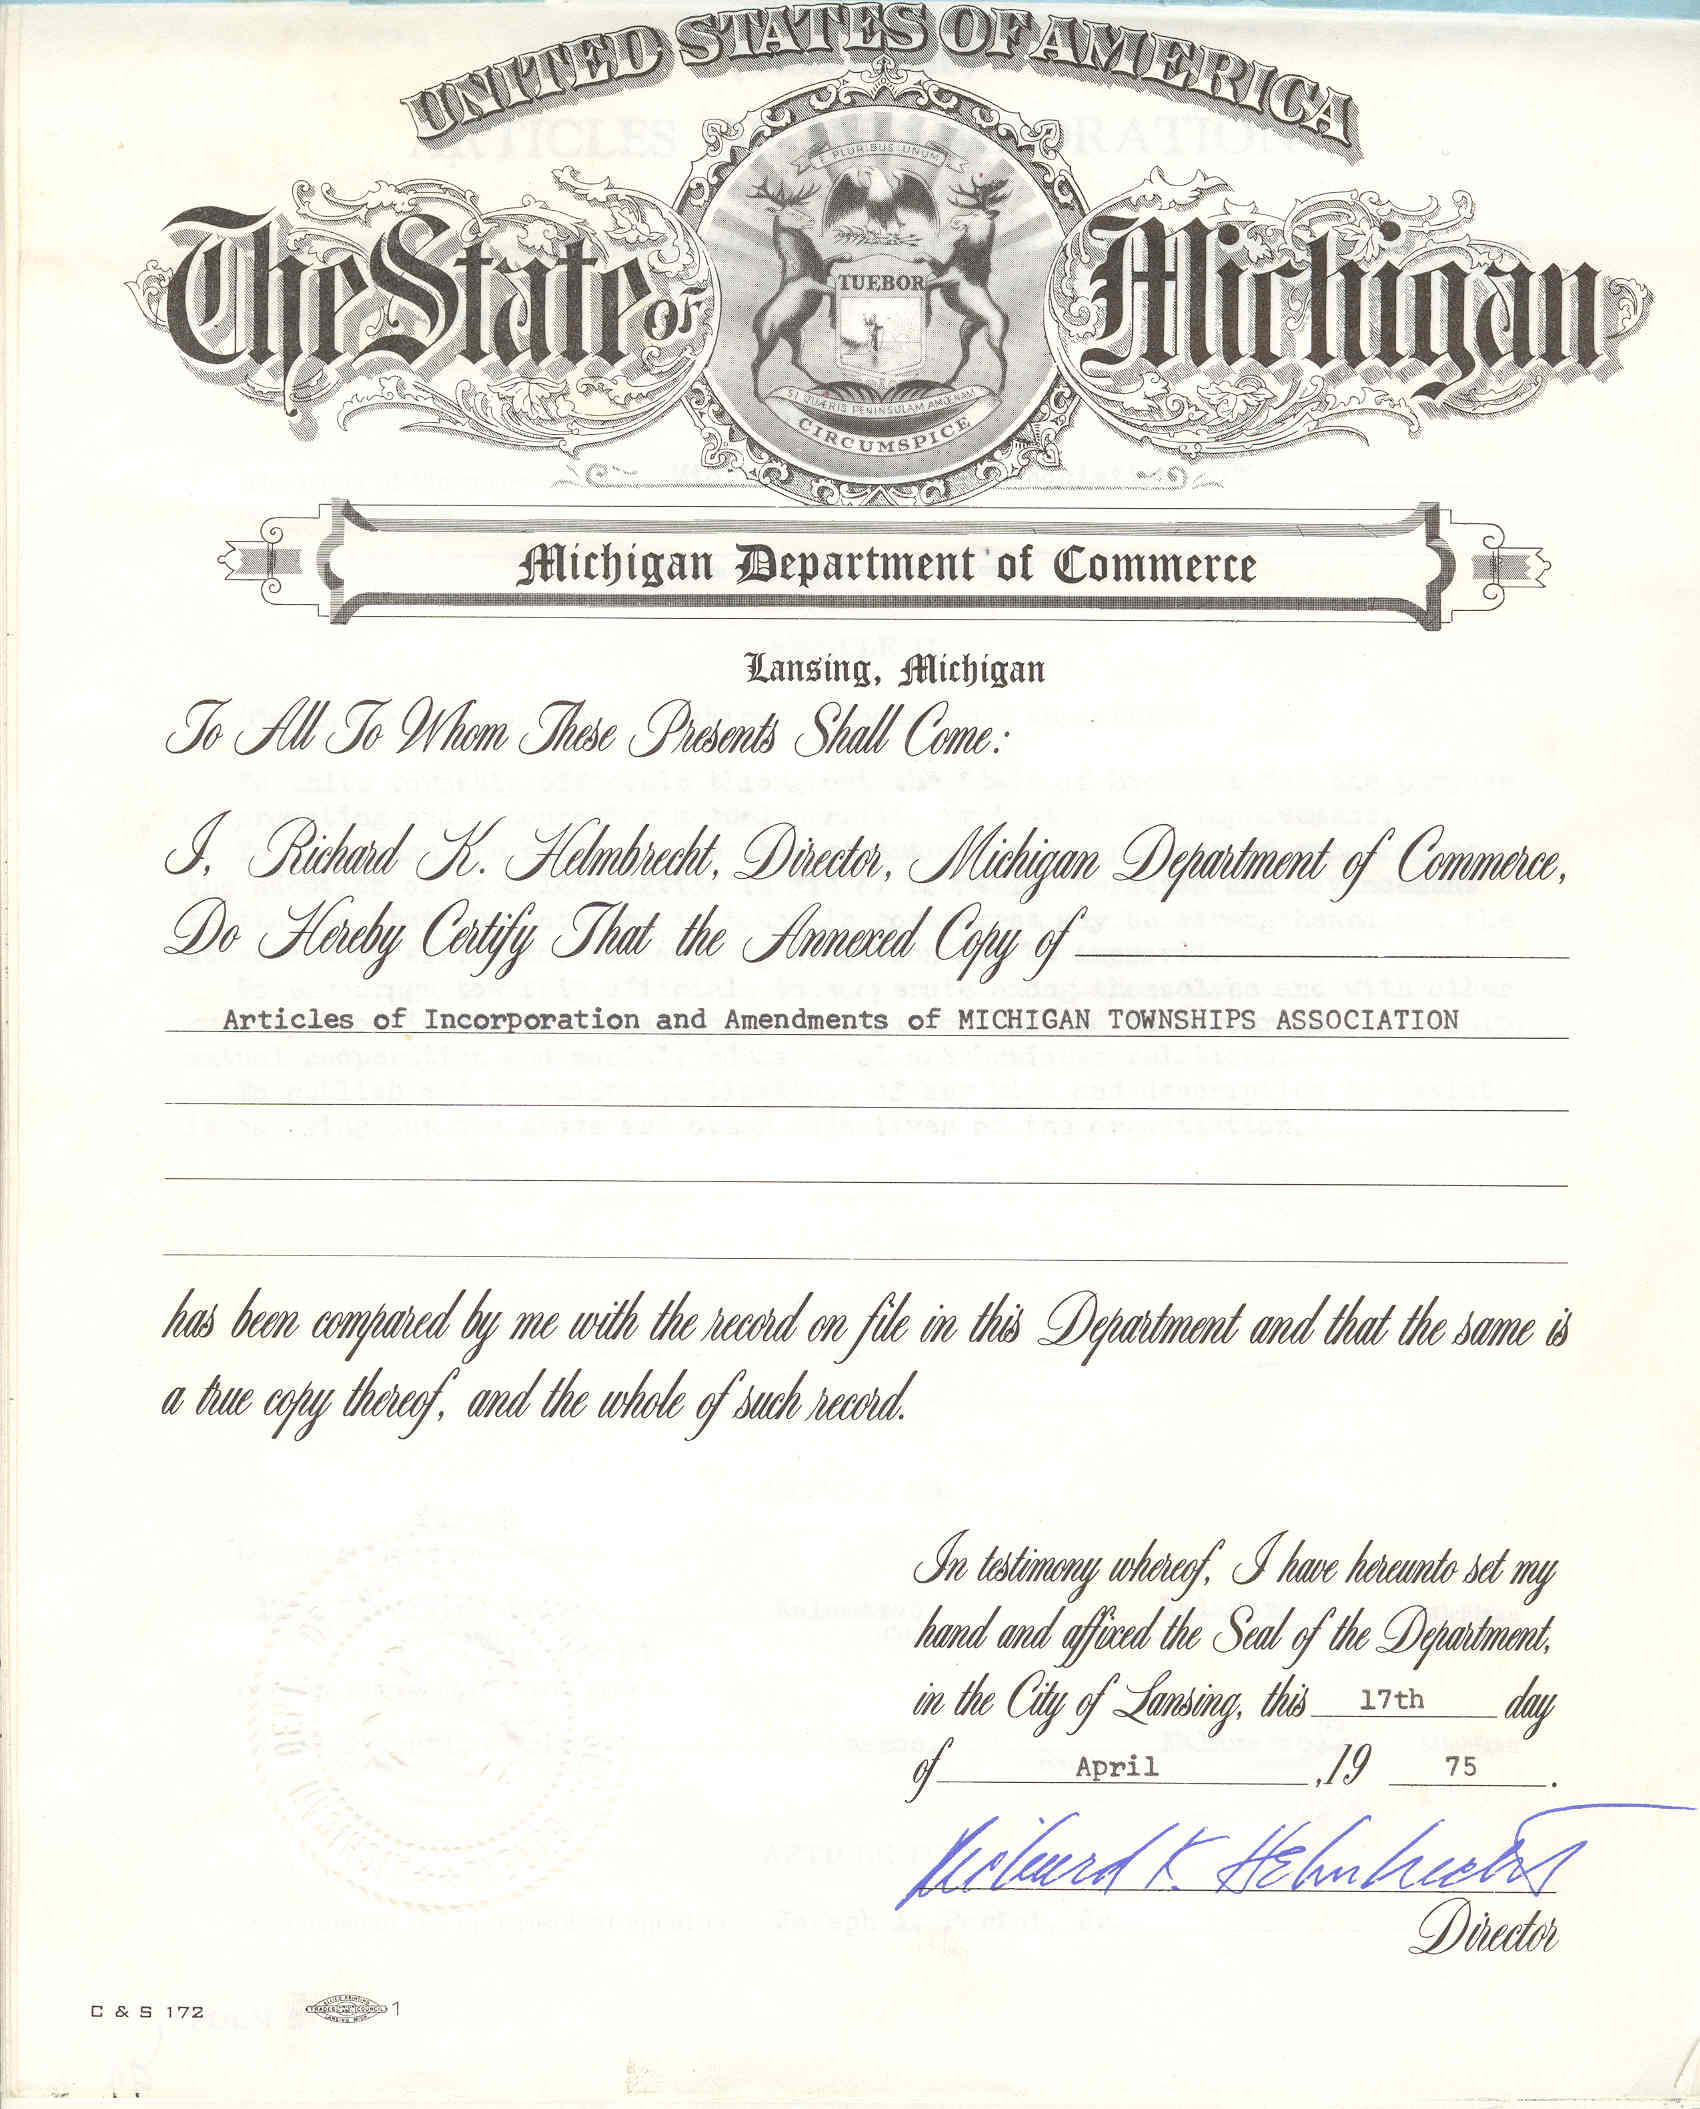 UNITED STATES OF AMERICA
E PLURIBUS UNUM
The State OF Michigan
TUEBOR
SI QUÆRIS PENINSULAM AMOENAM
CIRCUMSPICE
Michigan Department of Commerce
Lansing, Michigan
To All To Whom These Presents Shall Come:
I, Richard K. Helmbrecht, Director, Michigan Department of Commerce,
Do Hereby Certify That the Annexed Copy of
Articles of Incorporation and Amendments of MICHIGAN TOWNSHIPS ASSOCIATION
has been compared by me with the record on file in this Department and that the same is
a true copy thereof, and the whole of such record.
In testimony whereof, I have hereunto set my
hand and affixed the Seal of the Department,
in the City of Lansing, this 17th day
of April, 19 75.
Richard K. Helmbrecht
Director
C & S 172
ALLIED PRINTING
TRADES COUNCIL 1
LANSING, MICH.